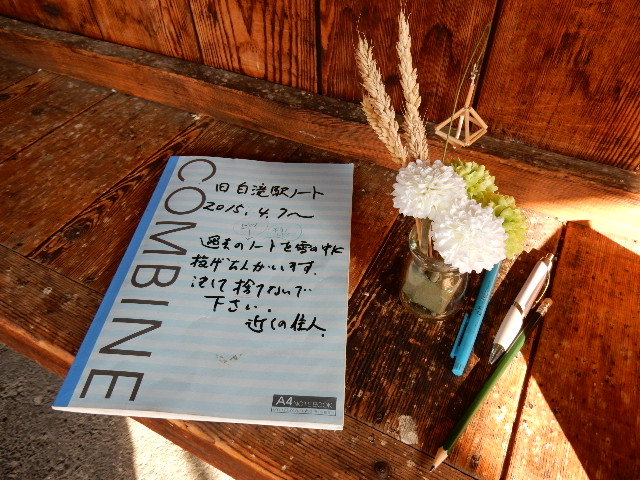 COMBINE
旧白滝駅ノート
2015.4.7～
過去のノートを雪の中に
投げる人がいます。
決して捨てないで
下さい。
近くの住人
A4 NOTEBOOK